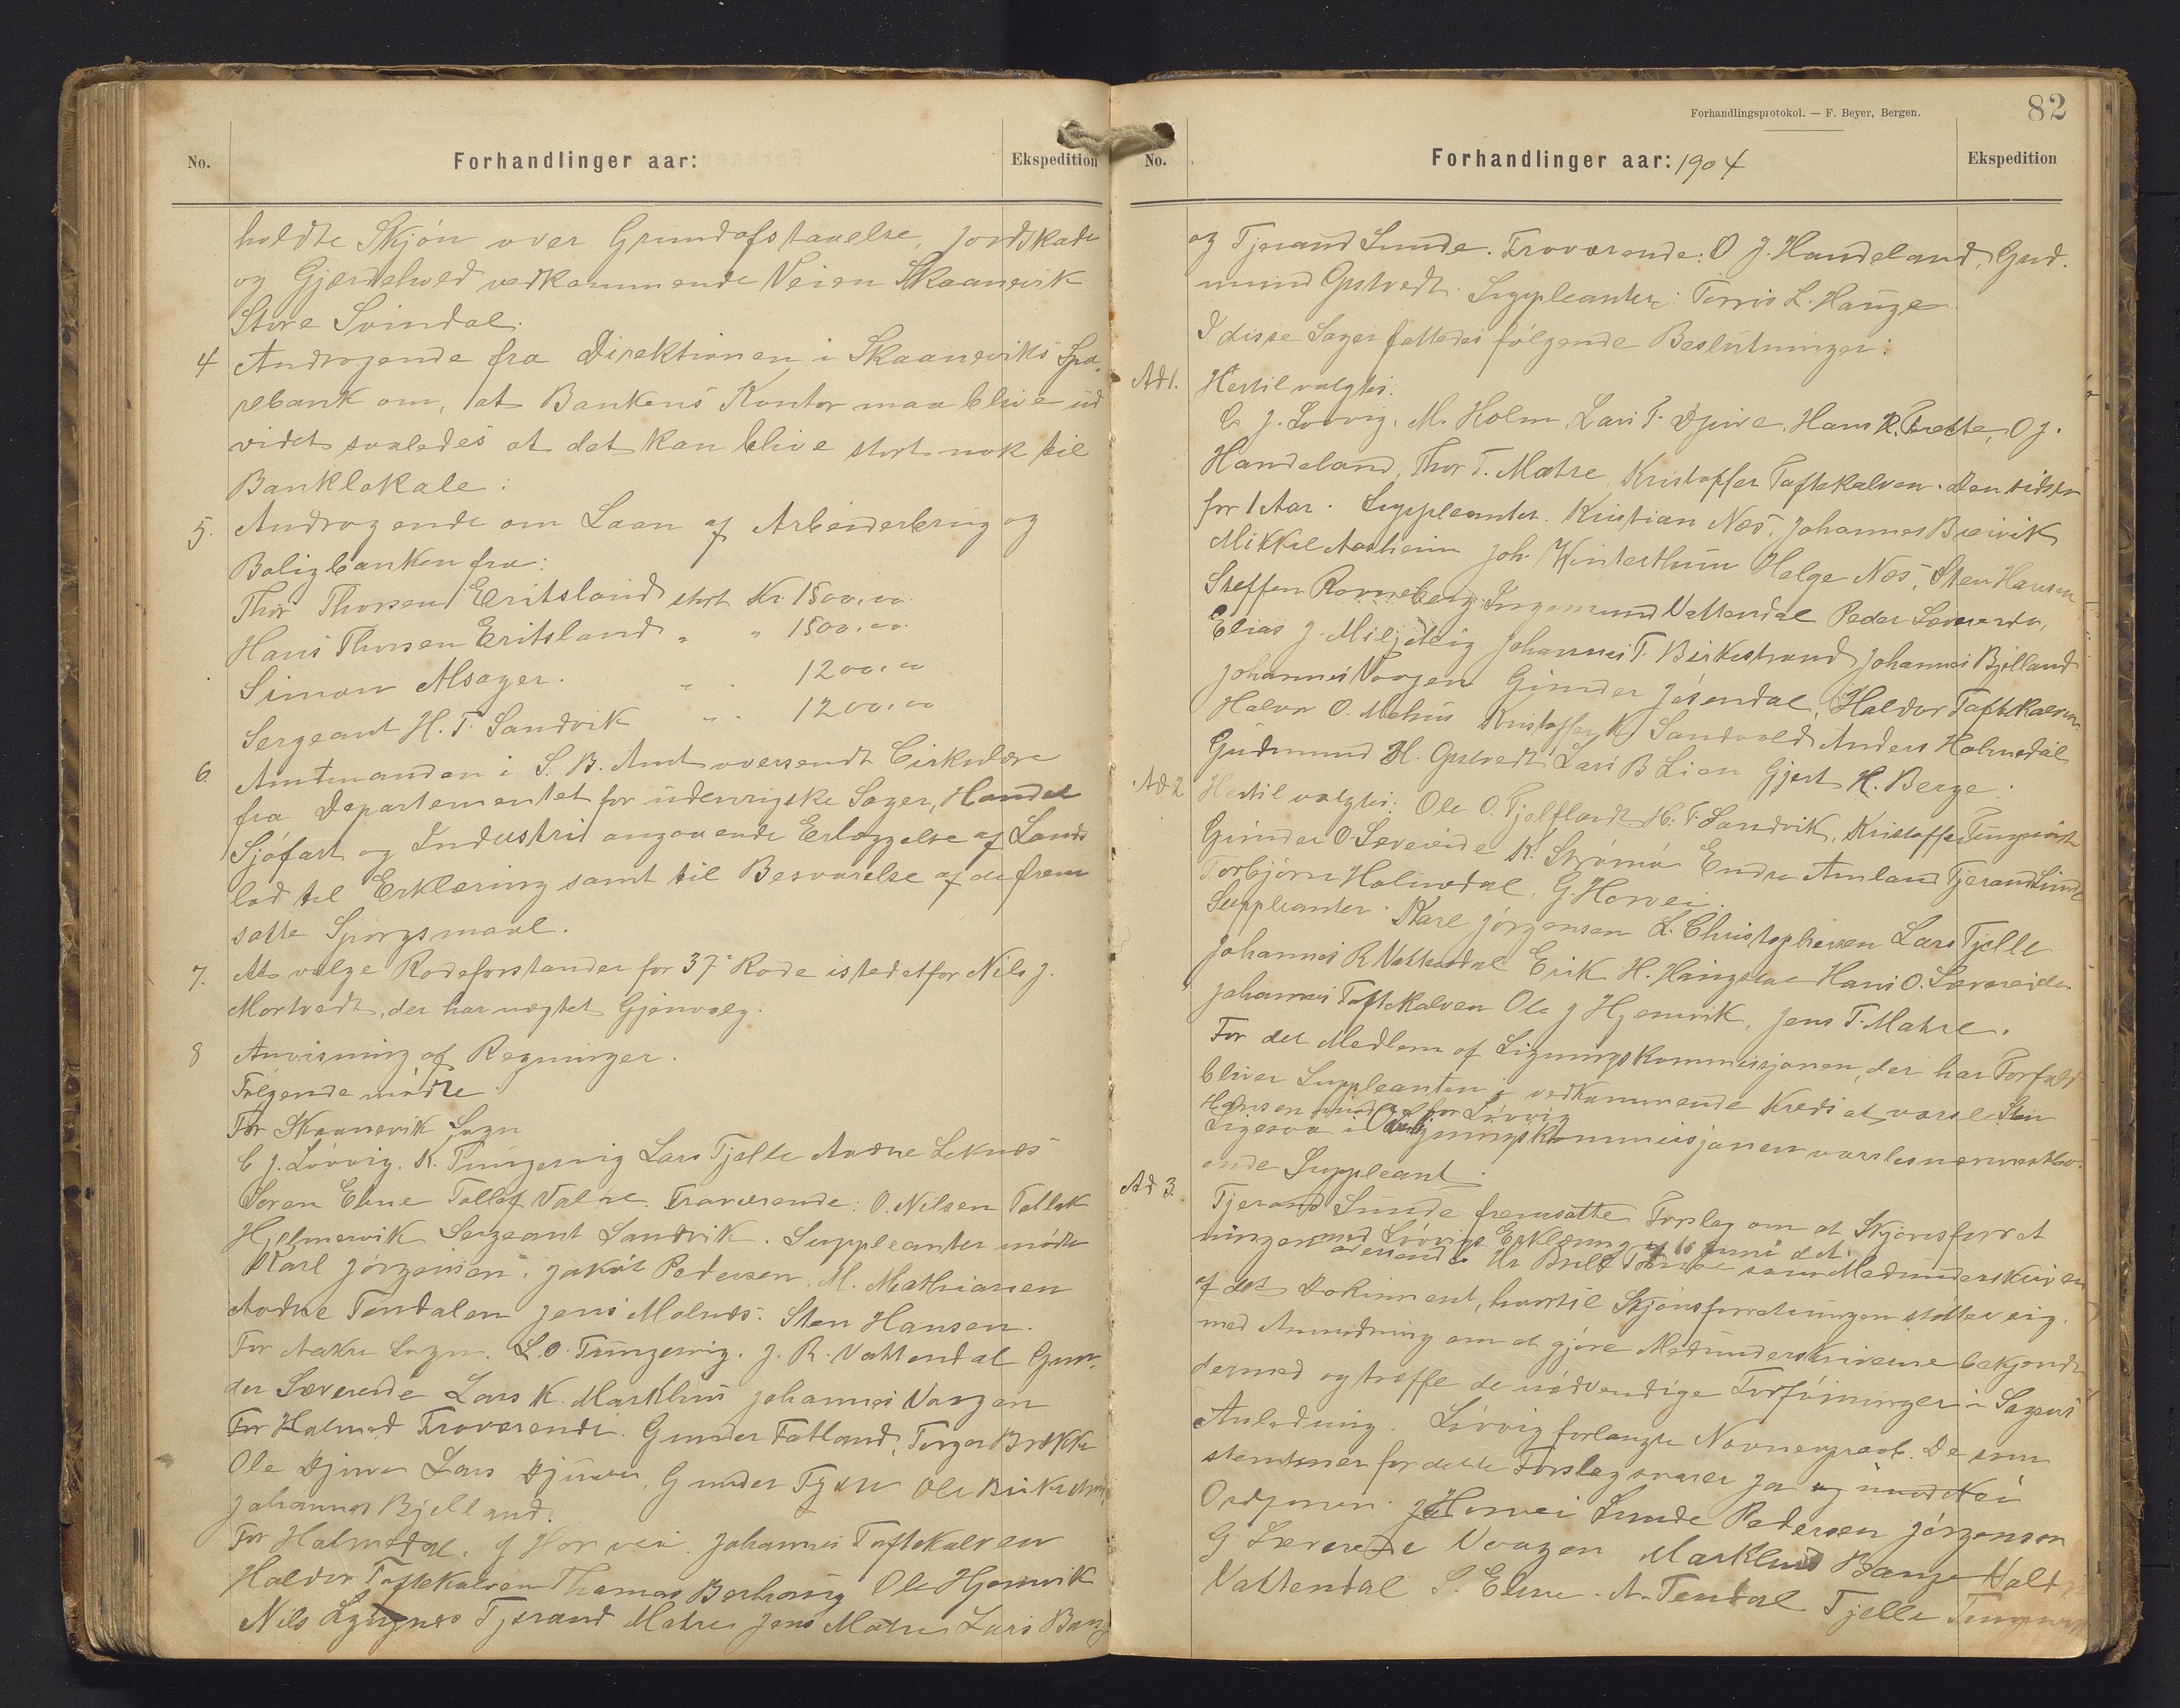 No. Forhandlinger aar: Ekspedition
holdte Skjøn over Grundafstaaelse, Jordskade
og Gjerdehold vedkommende Veien Skaanevik
Store Svindal.
4 Andragende fra Direktionen i Skaaneviks Spa-
rebank om, at Bankens Kontor maa blive ud
videt saaledes at det kan blive stort nok til
Banklokale:
5. Andragende om Laan af Arbeiderbrug og
Boligbanken fra:
Thor Thorsen Eritsland stort Kr. 1500,00
Hans Thorsen Eritsland " " 1500,00
Simon Alsager. " " 1200,00
Sergeant H. T. Sandvik " " 1200,00
6. Amtmanden i S. B. Amt oversendt Cirkulære
fra Departementet for udenrigske Sager, Handel
Sjøfart og Industri angaaende Erlæggelse af Lands
lod til Erklæring samt til Besvarelse af de frem
satte Spørgsmaal.
7. At vælge Rodeforstander for 37te Rode istedetfor Nils J.
Mortvedt, der har nægtet Gjenvalg.
8 Anvisning af Regninger.
Følgende mødte
For Skaanevik Sogn
C J. Løvvig. K. Tungesvig Lars Tjelle Andne Leknes
Søren Ebne Tollef Valre. Fraværende: O. Nilsen Tollak
Hjelmervik Sergeant Sandvik. Suppleanter mødte
Karl Jørgensen. Jakob Pedersen. M. Mathiasen
Andne Tendalen Jens Molnes. Sten Hansen.
For Aakre Sogn. L. O. Tungesvig. J. R. Vattendal Gun-
der Sævereide Lars K. Markhus Johannes Vaagen
For Holmed Fraværende. Gunder Fatland, Torger Brekke
Ole Djuve Lars Djuve. Gunder Fjære Ole Birkestrand
Johannes Bjelland.
For Holmedal. G Horvei. Johannes Toftekalven
Haldor Toftekalven Thomas Berhaug Ole Hjemvik
Nils Lygnes Tjerand Matre Jens Matre Lars Bauge
Forhandlingsprotokol. — F. Beyer, Bergen. 82
No. Forhandlinger aar: 1904 Ekspedition
og Tjerand Sunde. Fraværende: O J. Handeland, Gud.
mund Opstvedt. Suppleanter: Torris L. Hauge
I disse Sager fattedes følgende Beslutninger:
Ad 1. Hertil valgtes:
C J. Løvvig. M. Holm Lars T. Djuve. Hans R. Tvette, O J.
Handeland, Thor T. Matre Kristoffer Toftekalven. Den sidste
for 1 Aar. Suppleanter. Kristian Nes. Johannes Breivik
Mikkel Aasheim Joh. Winterthun Helge Nes. Sten Hansen
Steffen Ronneberg Ingemund Vattendal Peder Sævereide,
Elias J. Miljeteig Johannes T. Birkestrand Johannes Bjelland
Johannes Vaagen Gunder Jøsendal, Haldor Toftekalven.
Halvor O. Mehus Kristoffer K. Sandvold Anders Holmedal
Gudmund H. Opstvedt Lars B Lien Gjert H. Berge.
Ad 2 Hertil valgtes: Ole O. Fjelland H. T. Sandvik, Kristoffer Tungesvik
Gunder O Sævereide K. Strømø Endre Amland Tjerand Sunde
Torbjørn Holmedal. G. Horvei.
Suppleanter. Karl Jørgensen L. Christophersen Lars Tjelle
Johannes R Vattendal Erik H. Haugstad Hans O. Sævereide
Johannes Toftekalven Ole J Hjemvik, Jens T. Matre.
For det Medlem af Ligningskommissjonen, der har Forfald
bliver Suppleanten i vedkommende Kreds at varsle. Sten
Hansen mødte for Løvvig
Ligesaa i Overligningskommissjonen varsles nærmestbo-
ende Suppleant.
Ad 3. Tjerand Sunde fremsatte Forslag om at Skjønsforret
ningen med Løvvigs Erklæring af 10 Juni d. A.
oversendes Hr som Medunderskriver
af det Dokument, hvortil Skjønsforretningen støtter sig.
med Anmodning om at gjøre Medunderskriverne bekjendt
dermed og træffe de nødvendige Forføininger i Sagens
Anledning. Løvvig forlangte Navneopraab. De som
stemmer for dette Forslag svarer ja og imod Nei
Ordføreren. Ja Horvei Sunde Pedersen Jørgensen
G. Sævereide Vaagen Markhus Bauge Hald
Vattendal S. Ebne. A. Tendal Tjelle Tungesvik